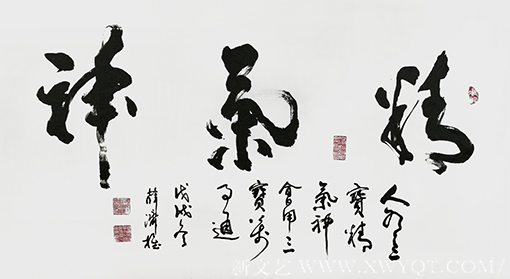 精氣神
人有三
寶精
氣神
會用三
寶萬
事通
戊戌
薛濟
新文艺 WWW.XWYQT.COM